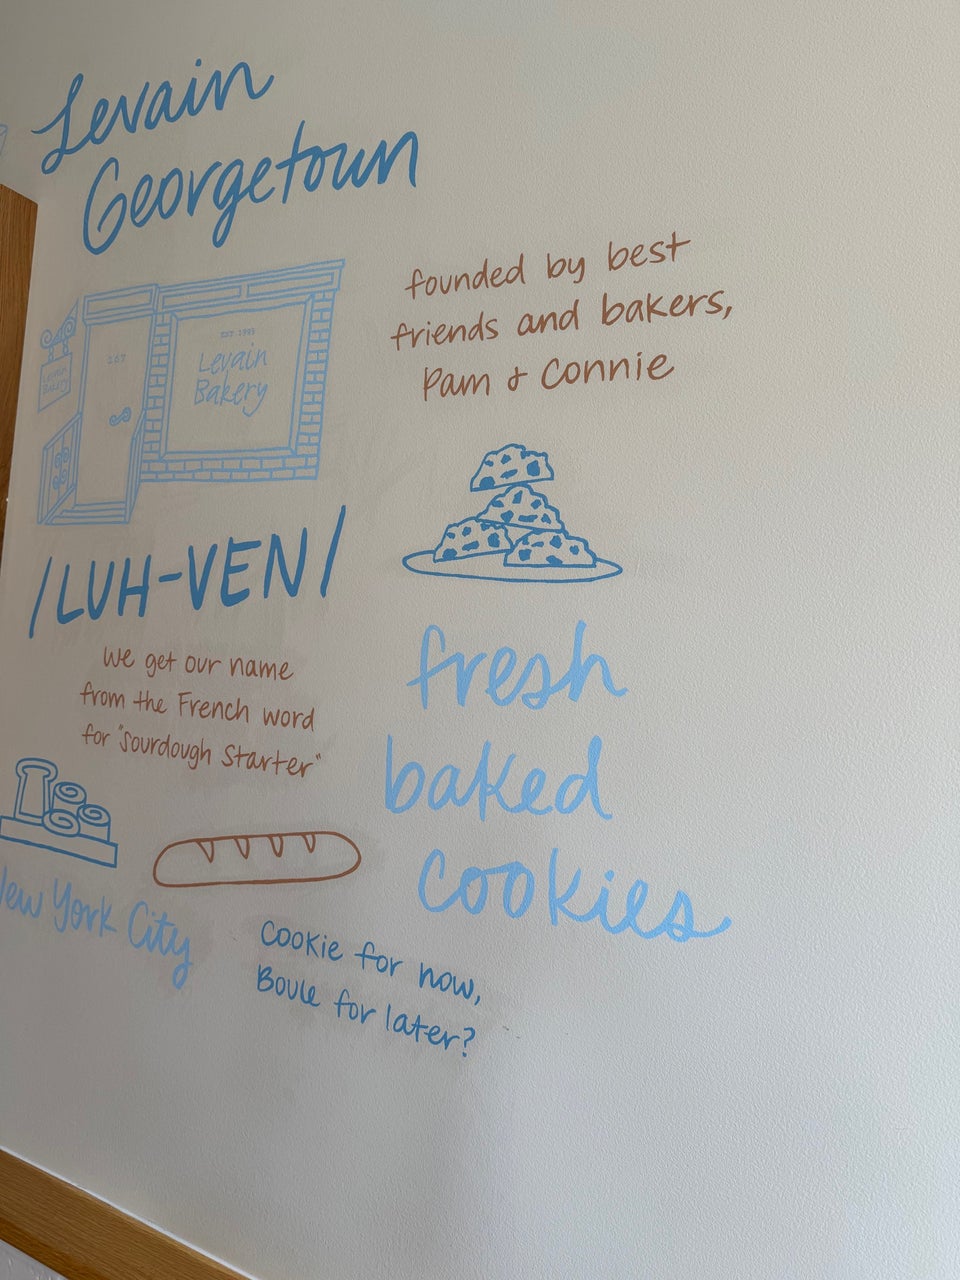 Levain
Georgetown
founded by best
friends and bakers,
Pam & Connie
EST 1995
Levain
Bakery
167
LEVAIN
BAKERY
/LUH-VEN/
We get our name
from the French word
for "Sourdough Starter"
fresh
baked
cookies
New York City
Cookie for now,
Boule for later?